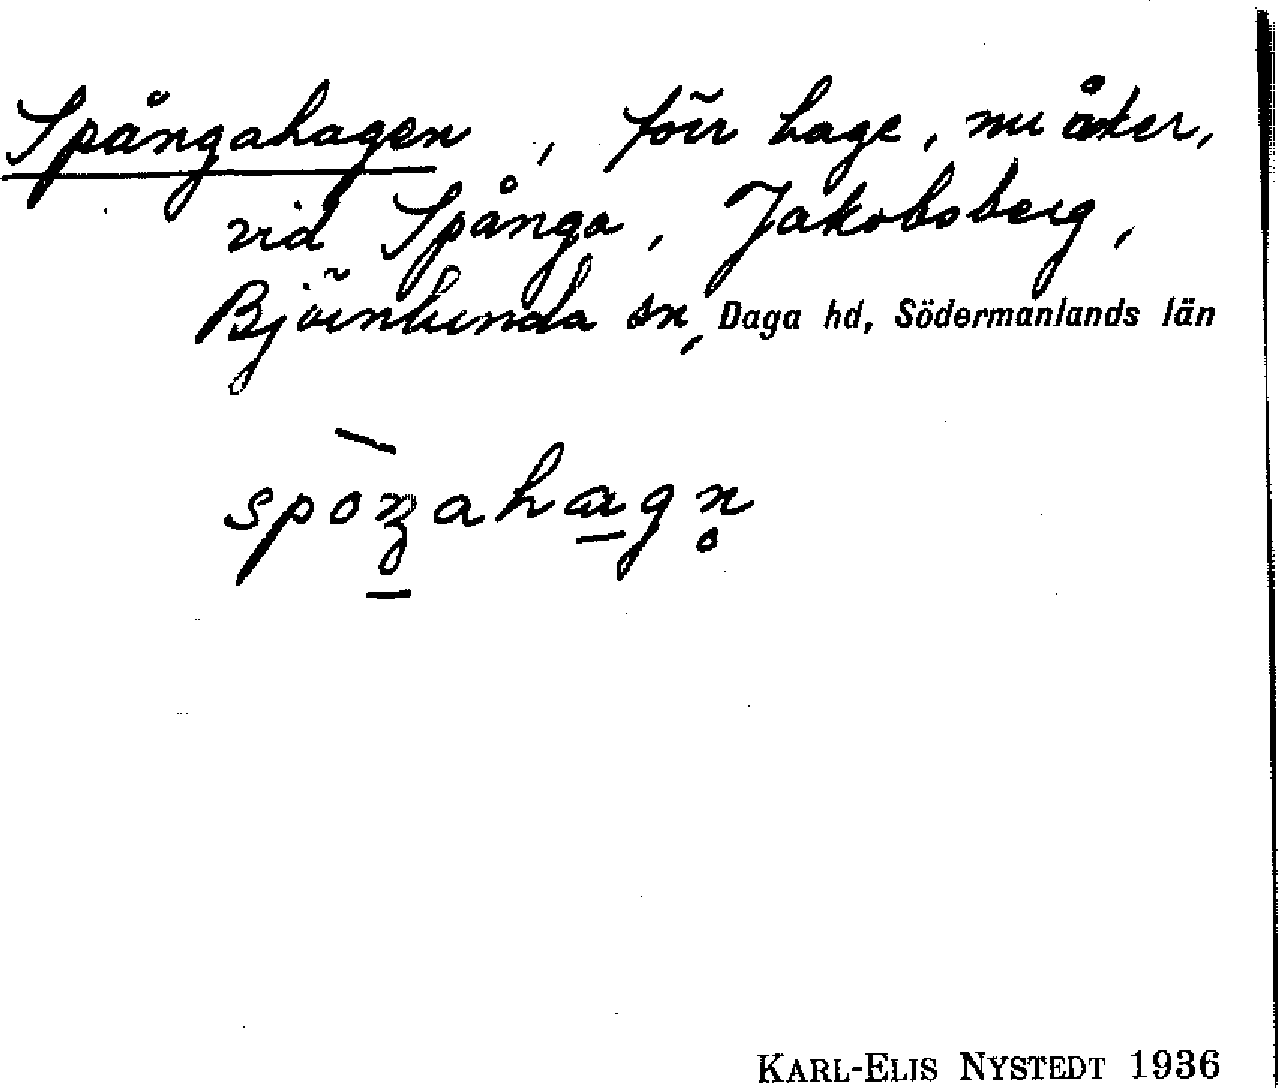 Spångahagen, förr hage, nu åker,
vid Spånga, Jakobsberg,
Björnlunda sn, Daga hd, Södermanlands län
KARL-ELIS NYSTEDT 1936